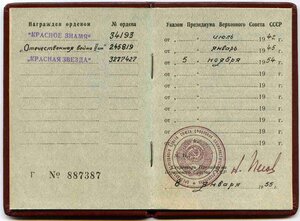 Награжден орденом № ордена
"КРАСНОЕ ЗНАМЯ" 34193
"Отечественная война II ст" 245819
"КРАСНАЯ ЗВЕЗДА" 3277427
Г № 887387
Указом Президиума Верховного Совета СССР
от июль 1942
от январь 1945
от 5 ноября 1954
от 19
от 19
от 19
от 19
от 19
от 19
8 января 1955